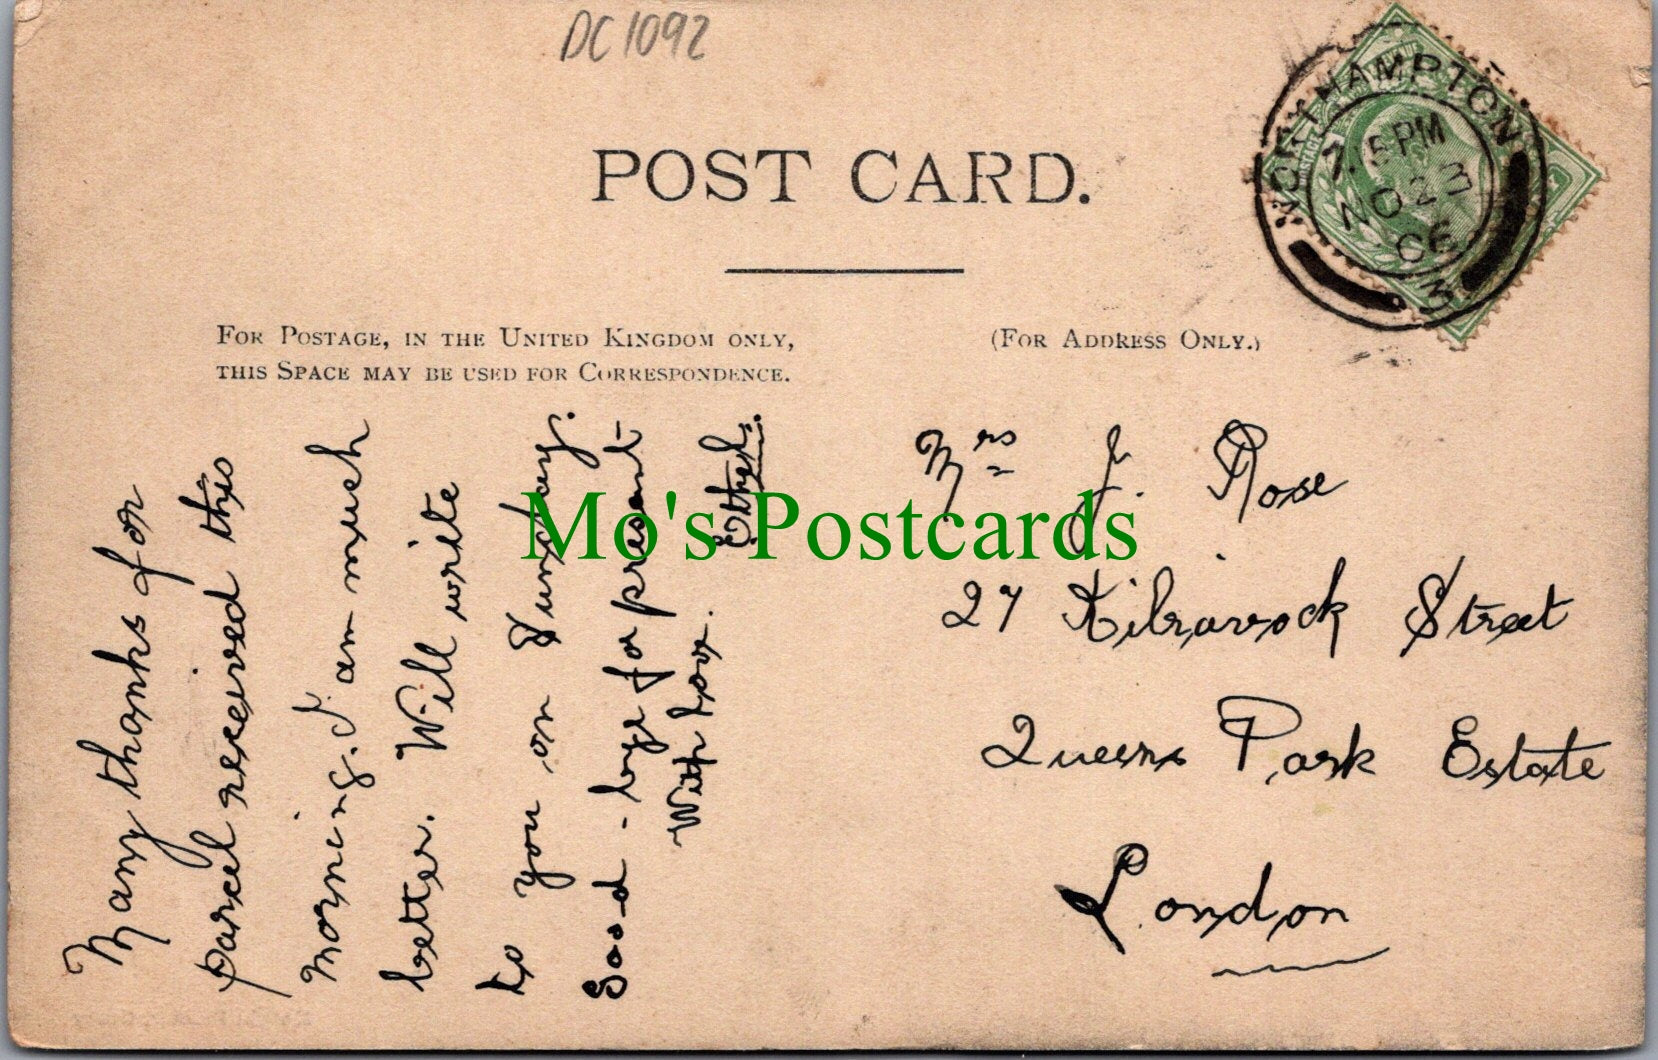 DC1092
POST CARD.
NORTHAMPTON
7.15PM
NO 23
06
3
FOR POSTAGE, IN THE UNITED KINGDOM ONLY,
THIS SPACE MAY BE USED FOR CORRESPONDENCE.
(FOR ADDRESS ONLY.)
Many thanks for
parcel received this
morning. I am much
better. Will write
to you on Sunday.
Good-bye for present
With love. Ethel.
Mrs J. Rose
27 Kilravock Street
Queens Park Estate
London
Mo's Postcards